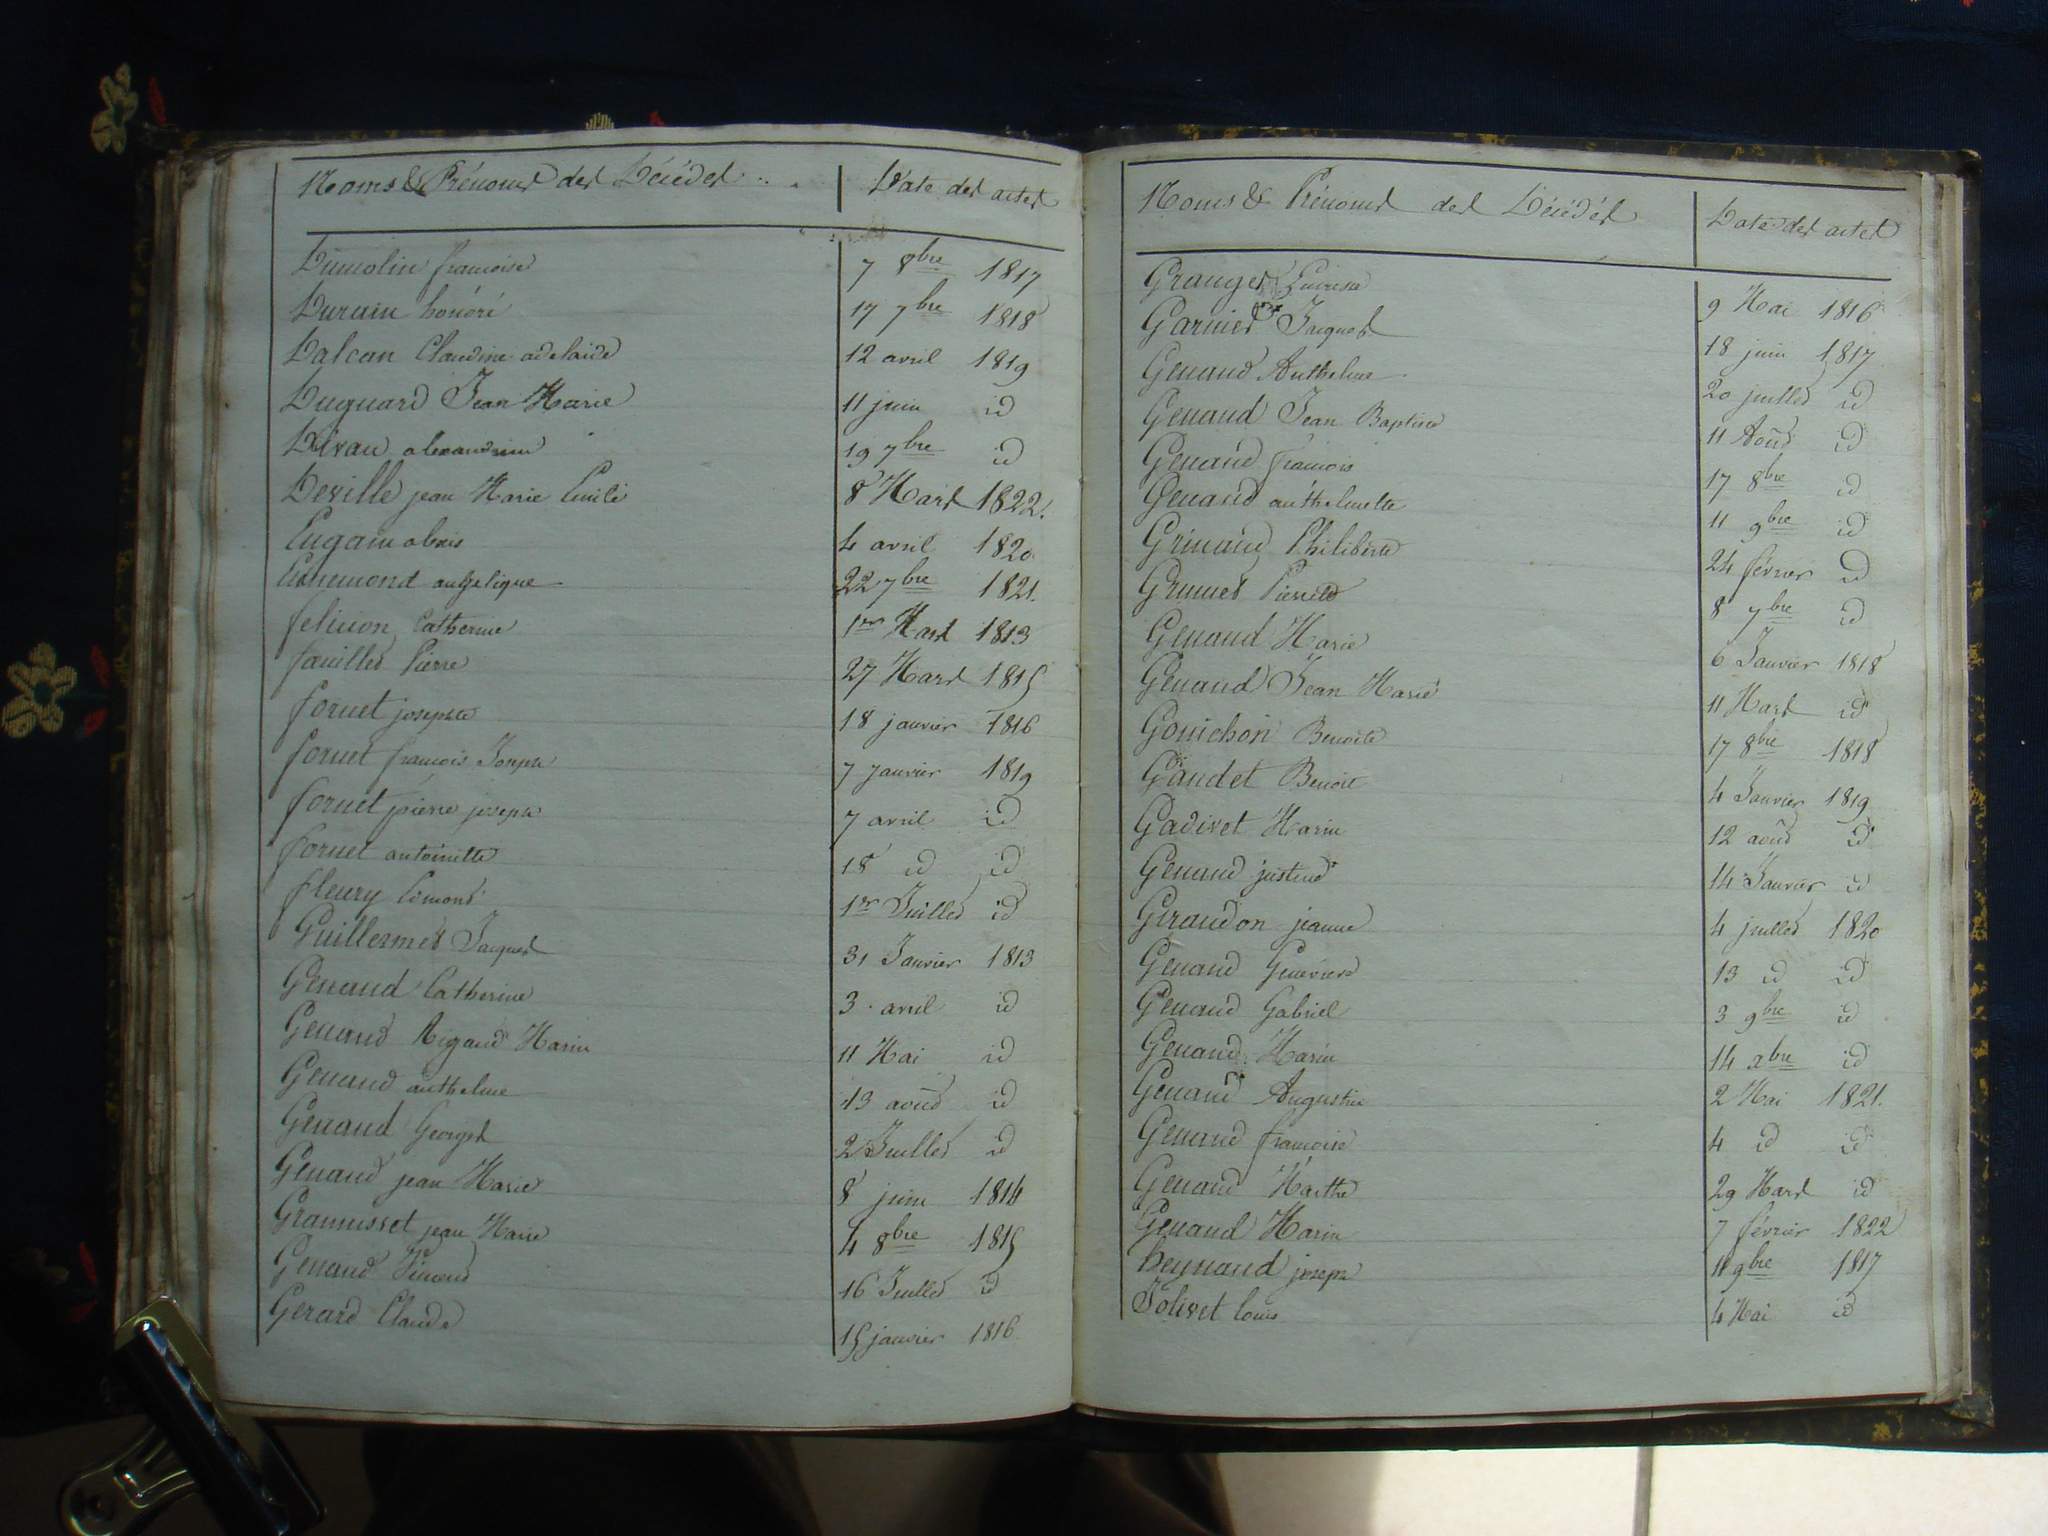 Noms & Prénoms des Décédés Date des actes
Dumolin françoise 7 8bre 1817
Durain honoré 17 7bre 1818
Dalcan Claudine adelaide 12 avril 1819
Duguard Jean Marie 11 juin id
alexandrine 19 7bre id
Deville jean Marie Emile 8 Mars 1822.
Eugain alexis 4 avril 1820
angelique 22 7bre 1821.
felision Catherine 1er Mars 1813
fauillet Pierre 27 Mars 1815
fornet josephte 18 janvier 1816
fornet françois Joseph 7 janvier 1819
fornet pierre joseph 7 avril id
fornet antoinette 18 id id
fleury Edmond 1er Juillet id
Guillermet Jacques 31 Janvier 1813
Genand Catherine 3 avril id
Genand Rigaud Marie 11 Mai id
Genand anthelme 13 aout id
Genand Georges 2 Juillet id
Genand jean Marie 8 juin 1814
Gramusset jean Marie 4 8bre 1815
Genand Vincend 16 Juillet id
Gerard Claude 15 janvier 1816
Noms & Prénoms des Décédés Date des actes
Granger 9 Mai 1816
Garnier Jacques 18 juin 1817
Genand Anthelme 20 juillet id
Genand Jean Baptiste 11 Aout id
Genand françois 17 8bre id
Genand anthelmette 11 9bre id
Grinand Philiberte 24 février id
Grumet Pierrette 8 7bre id
Genand Marie 6 Janvier 1818
Genand Jean Marie 11 Mars id
Gonichon Benoite 17 8bre 1818
Gaudet Benoit 4 Janvier 1819
Gadivet Marie 12 aout id
Genand justine 14 Janvier id
Giraudon jeanne 4 juillet 1820
Genand Genevieve 13 id id
Genand Gabriel 3 9bre id
Genand Marie 14 xbre id
Genand Augustin 2 Mai 1821.
Genand françoise 4 id id
Genand Marthe 29 Mars id
Genand Marie 7 février 1822
Heynand joseph 11 9bre 1817
Jolivet louis 4 Mai id